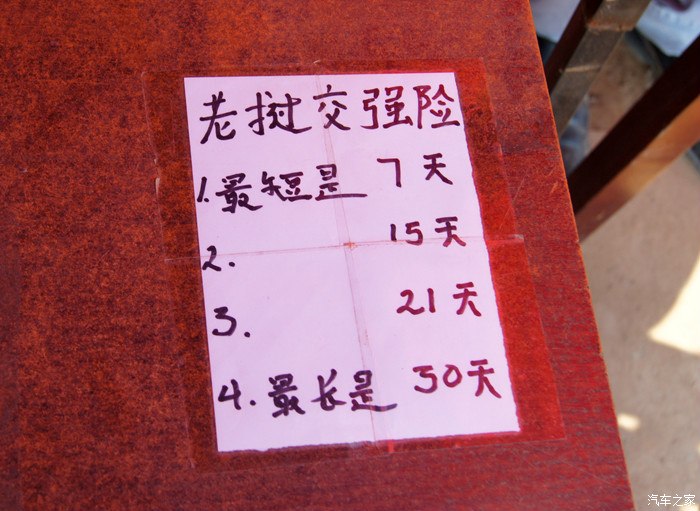 老挝交强险
1. 最短是 7天
2. 15天
3. 21天
4. 最长是 30天
汽车之家